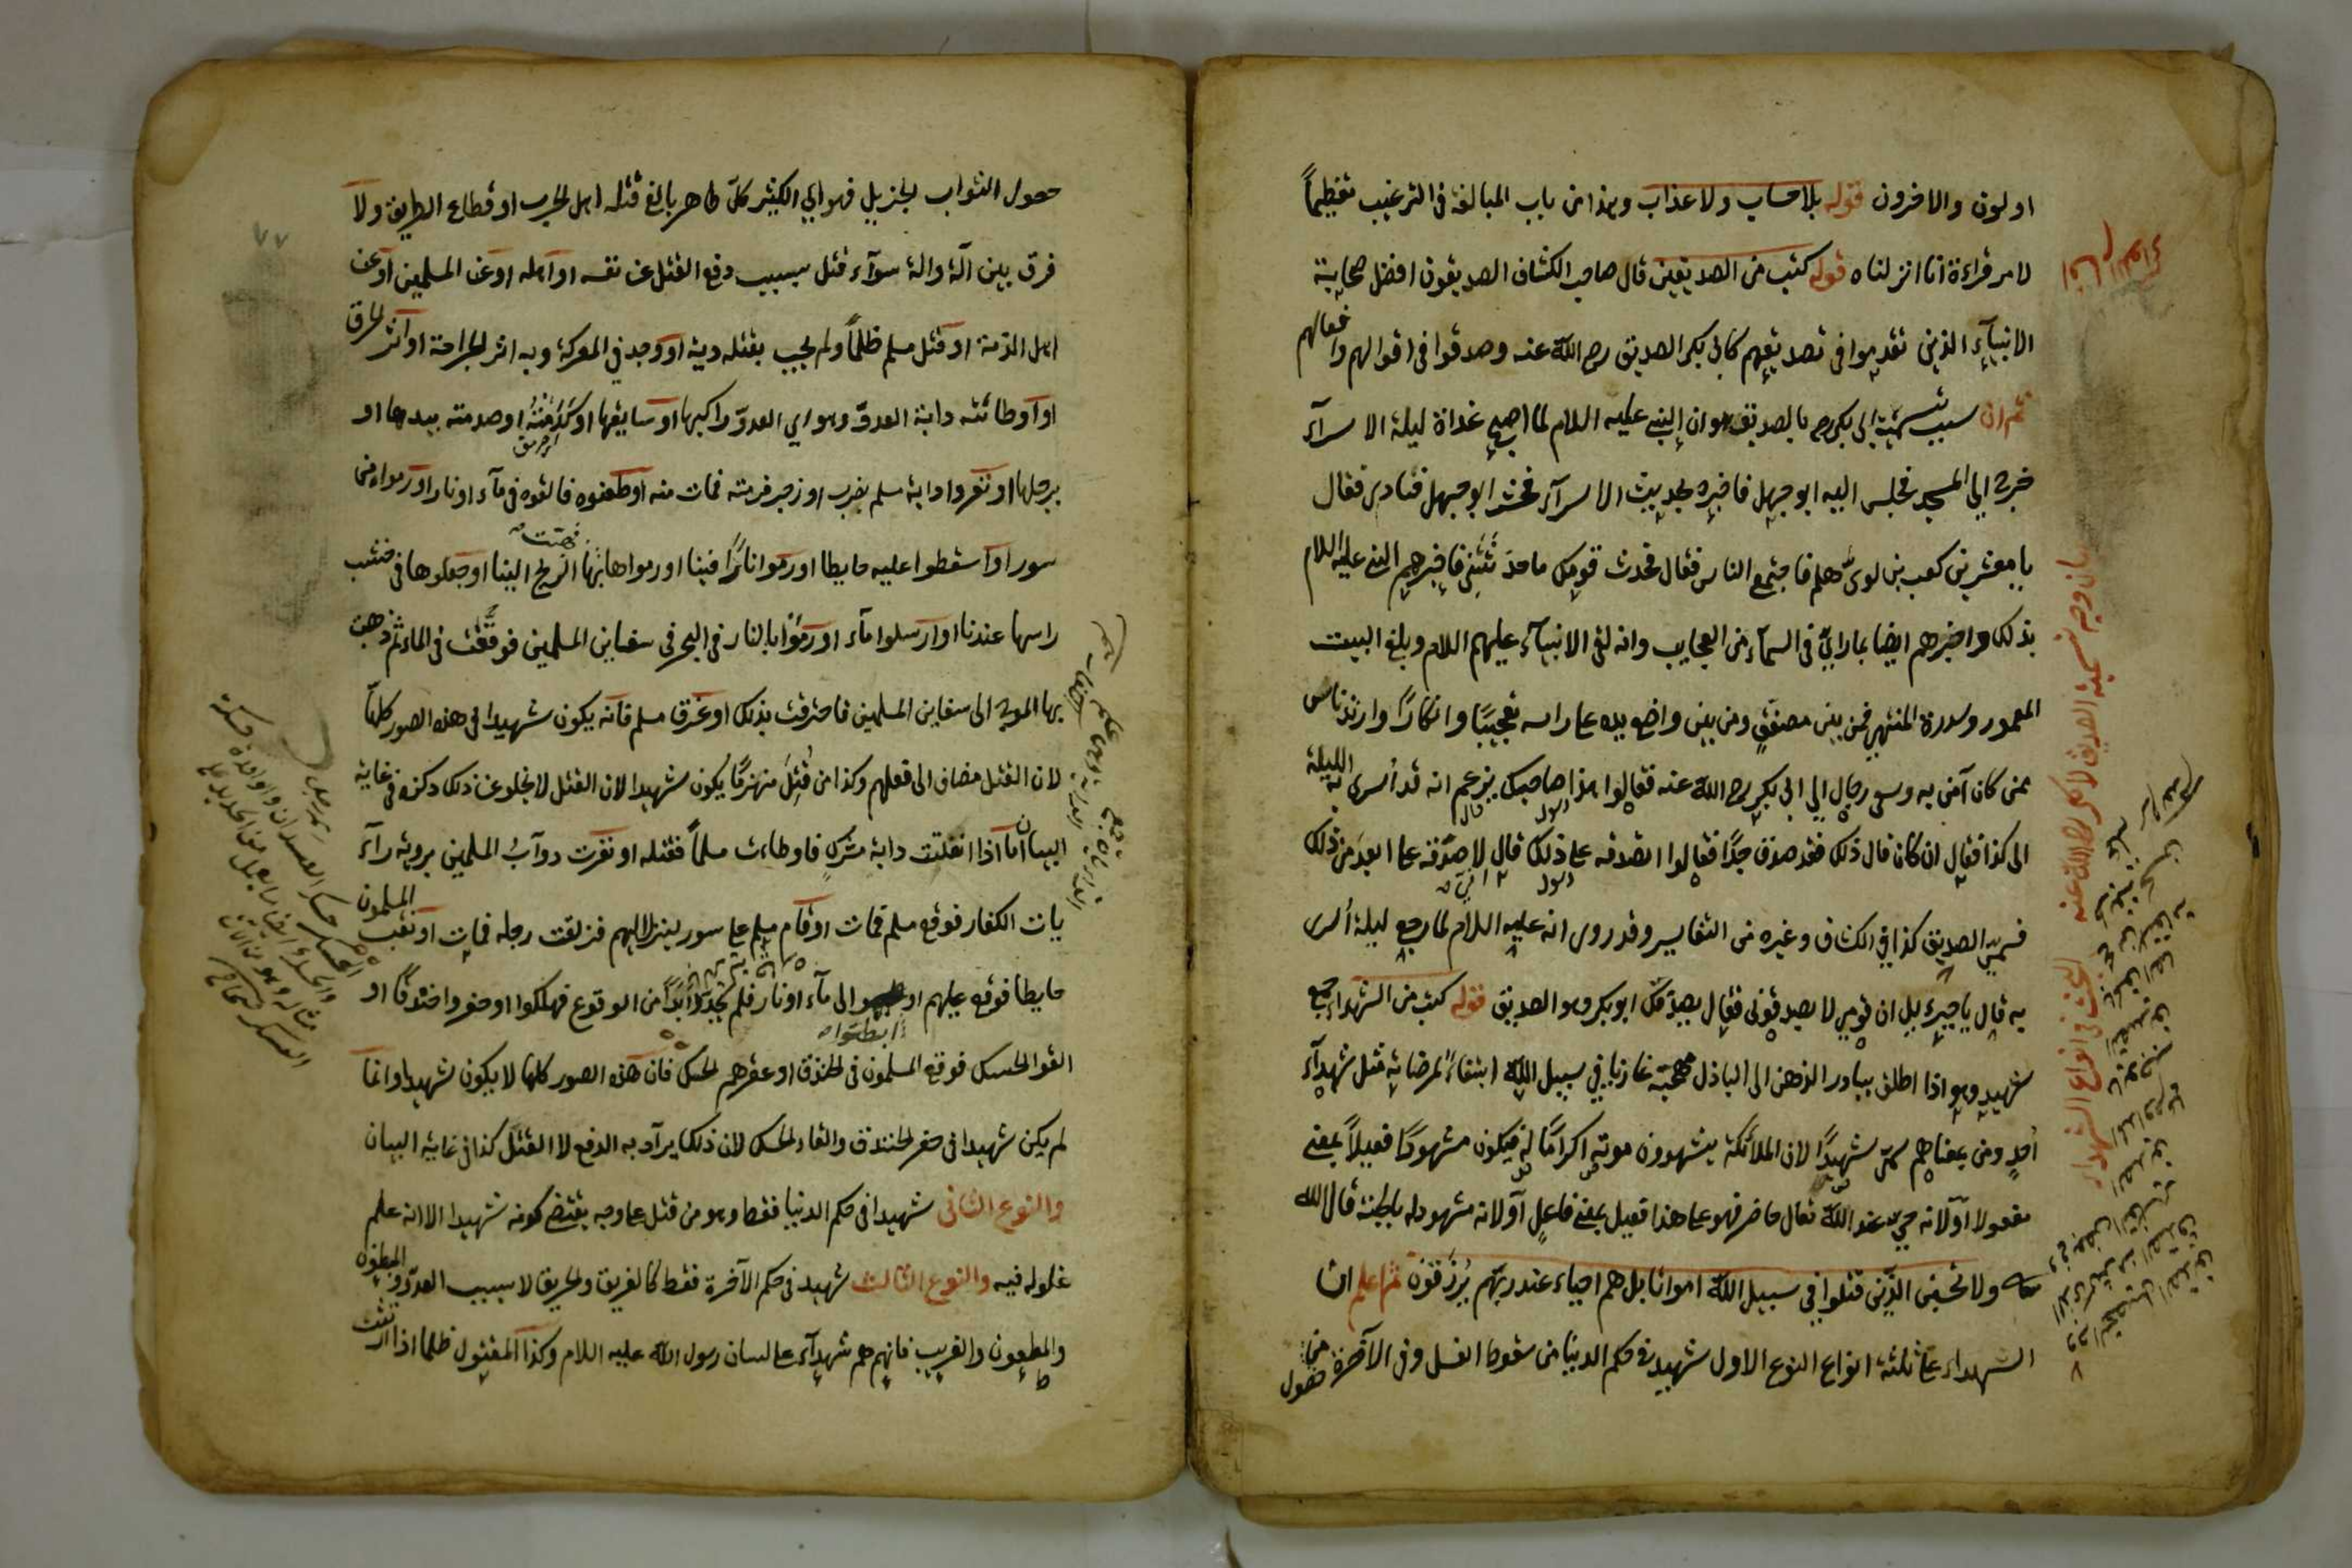 اولون والاخرون قوله بلا حساب ولا عذاب وهذا من باب المبالغة فى الترغيب تعظيماً
لامر قراءة انا انزلناه قوله كتب من الصديقين قال صاحب الكشاف الصديقون افضل صحابة
الانبيآء الذين تقدموا فى تصديقهم كابى بكر الصديق رضى الله عنه وصدقوا فى اقوالهم وافعالهم
ثم ان سبب تسمية ابى بكر رض بالصديق هو ان النبى عليه السلام لما اصبح غداة ليلة الاسرآء
خرج الى المسجد فجلس اليه ابو جهل فاخبره بحديث الاسرآء فحث ابو جهل فنادى فقال
يا معشر بن كعب بن لوى هلم فاجتمع الناس فقال فحدث قومك ما حدثتنى فاخبرهم النبى عليه السلام
بذلك واخبرهم ايضا بما راى فى السمآء من العجايب وانه لقى الانبيآء عليهم السلام وبلغ البيت
المعمور وسدرة المنتهى فمن بين مصفق ومن بين واضع يده على راسه تعجبًا وانكارًا وارتد ناس
ممن كان آمن به وسعى رجال الى ابى بكر رضى الله عنه فقالوا هذا صاحبك يزعم انه قد أسرى به الليلة
الى كذا فقال ان كان قال ذلك فقد صدق جدًا فقالوا اتصدقه على ذلك قال لاصدقه على ابعد من ذلك
فسمى الصديق كذا فى الكشاف وغيره من التفاسير وقد روى انه عليه السلام لما رجع ليلة أسرى
به قال يا جبرءيل ان قومى لا يصدقونى فقال يصدقك ابو بكر وهو الصديق قوله كتب من الشهداء جمع
شهيد وهو اذا اطلق يبادر الذهن الى الباذل مهجته غازيا فى سبيل الله ابتغاءً لمرضاته مثل شهدآء
أحدٍ ومن بمعناهم سمى شهيدًا لان الملائكة يشهدون موته اكرامًا له فيكون مشهودًا فعيلاً بمعنى
مفعولا او لانه حىّ عند الله تعالى حاضر فهو على هذا فعيل بمعنى فاعل او لانه مشهود له بالجنة قال الله
تعالى ولا تحسبن الذين قتلوا فى سبيل الله امواتا بل هم احياء عند ربهم يرزقون ثم اعلم ان
الشهداء على ثلثة انواع النوع الاول شهيد فى حكم الدنيا من سقوط الغسل وفى الآخرة من
حصول
بيان وجه تسمية الصديق لابى بكر رضى الله عنه
البحث فى انواع الشهداء
حصول الثواب الجزيل فهو اى الكثير كل طاهر بالغ قتله اهل الحرب او قطاع الطريق ولا
فرق بين آلة وآلة سوآء قتل بسبب دفع القتل عن نفسه او اهله او عن المسلمين او عن
اهل الذمة او قتل مسلم ظلماً ولم يجب بقتله دية او وجد فى المعركة وبه اثر الجراحة او اثر الحرق
او اوطائته دابة العدوّ وهو اى العدوّ راكبها او سايقها او كدمته او صدمته بيدها او
برجلها او نفروا دابة مسلم بضرب او زجر فرمته فمات منه او طعنوه فالقوه فى مآء او نار او رموه من
سور او اسقطوا عليه حايطا او رموا نارًا فينا او رموا هابتها الريح الينا او جعلوها فى خشب
راسها عندنا او ارسلوا مآء او رموا بالنار فى البحر فى سفاين المسلمين فوقعت فى الماء ثم ذهبت
بها الموج الى سفاين المسلمين فاحترقت بذلك او غرق مسلم فانه يكون شهيدا فى هذه الصور كلها
لان القتل مضاف الى فعلهم وكذا من قُتِل منهزمًا يكون شهيدا لان القتل لا يخلو عن ذلك ذكره فى غاية
البيان اما اذا انفلتت دابة مشرك فاوطاءت مسلماً فقتله او نفرت دوآب المسلمين بروية رآء
يات الكفار فوقع مسلم فمات او قام مسلم على سور لينزل اليهم فزلقت رجله فمات او نقب المسلمون
حايطا فوقع عليهم او الى مآء او نار فلم يجدوا ابدًا من الوقوع فهلكوا او حفروا خندقًا او
القوا الحسك فوقع المسلمون فى الخندق او عقرهم الحسك فان هذه الصور كلها لا يكون شهيدا وانما
لم يكن شهيدا فى حفر الخندق والقاء الحسك لان ذلك يراد به الدفع لا القتل كذا فى غاية البيان
والنوع الثانى شهيد فى حكم الدنيا فقط وهو من قتل على وجه يقتضى كونه شهيدا الا انه علم
غلوله فيه والنوع الثالث شهيد فى حكم الآخرة فقط كالغريق والحريق لا بسبب العدوّ والمبطون
والمطعون والغريب فانهم هم شهدآء على لسان رسول الله عليه السلام وكذا المقتول ظلما اذا ارتث
٧٧